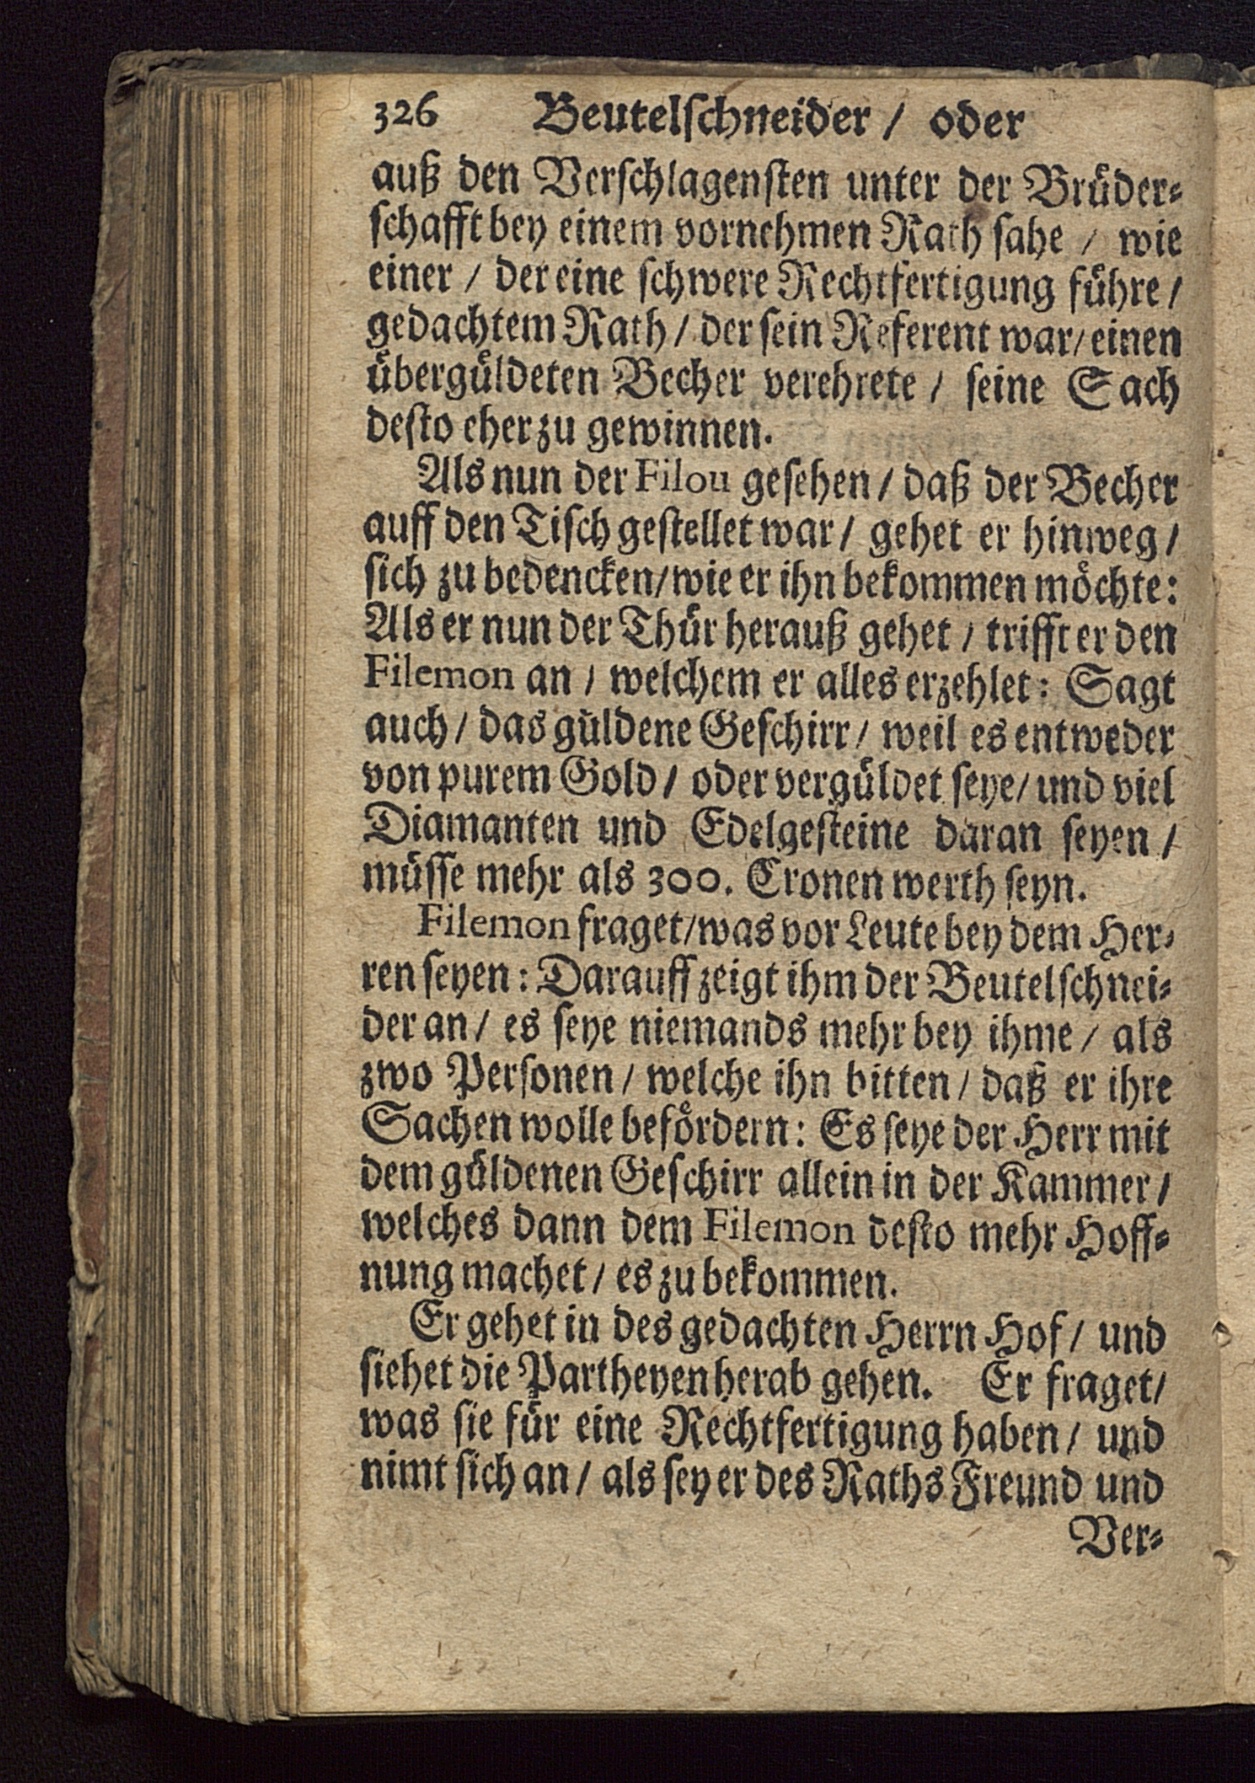 326 Beutelschneider / oder
auß den Verschlagensten unter der Brüder-
schafft bey einem vornehmen Rath sahe / wie
einer / der eine schwere Rechtfertigung führe /
gedachtem Rath / der sein Referent war / einen
übergüldeten Becher verehrete / seine Sach
desto eher zu gewinnen.
Als nun der Filou gesehen / daß der Becher
auff den Tisch gestellet war / gehet er hinweg /
sich zu bedencken / wie er ihn bekommen möchte:
Als er nun der Thür herauß gehet / trifft er den
Filemon an / welchem er alles erzehlet: Sagt
auch / das güldene Geschirr / weil es entweder
von purem Gold / oder vergüldet seye / und viel
Diamanten und Edelgesteine daran seyen /
müsse mehr als 300. Cronen werth seyn.
Filemon fraget / was vor Leute bey dem Her-
ren seyen: Darauff zeigt ihm der Beutelschnei-
der an / es seye niemands mehr bey ihme / als
zwo Personen / welche ihn bitten / daß er ihre
Sachen wolle befördern: Es seye der Herr mit
dem güldenen Geschirr allein in der Kammer /
welches dann dem Filemon desto mehr Hoff-
nung machet / es zu bekommen.
Er gehet in des gedachten Herrn Hof / und
siehet die Partheyen herab gehen. Er fraget /
was sie für eine Rechtfertigung haben / und
nimt sich an / als sey er des Raths Freund und
Ver-